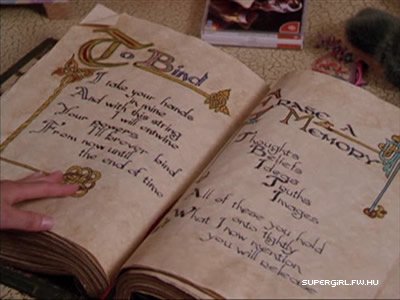 To Bind
I take your hands
in mine
And with this string
I will entwine
Your powers
I'll forever bind
From now until
the end of time
Erase A
Memory
Thoughts
Beliefs
Ideas
Truths
Images
All of these you hold
onto tightly
What I now mention
you will
SUPERGIRL.FW.HU